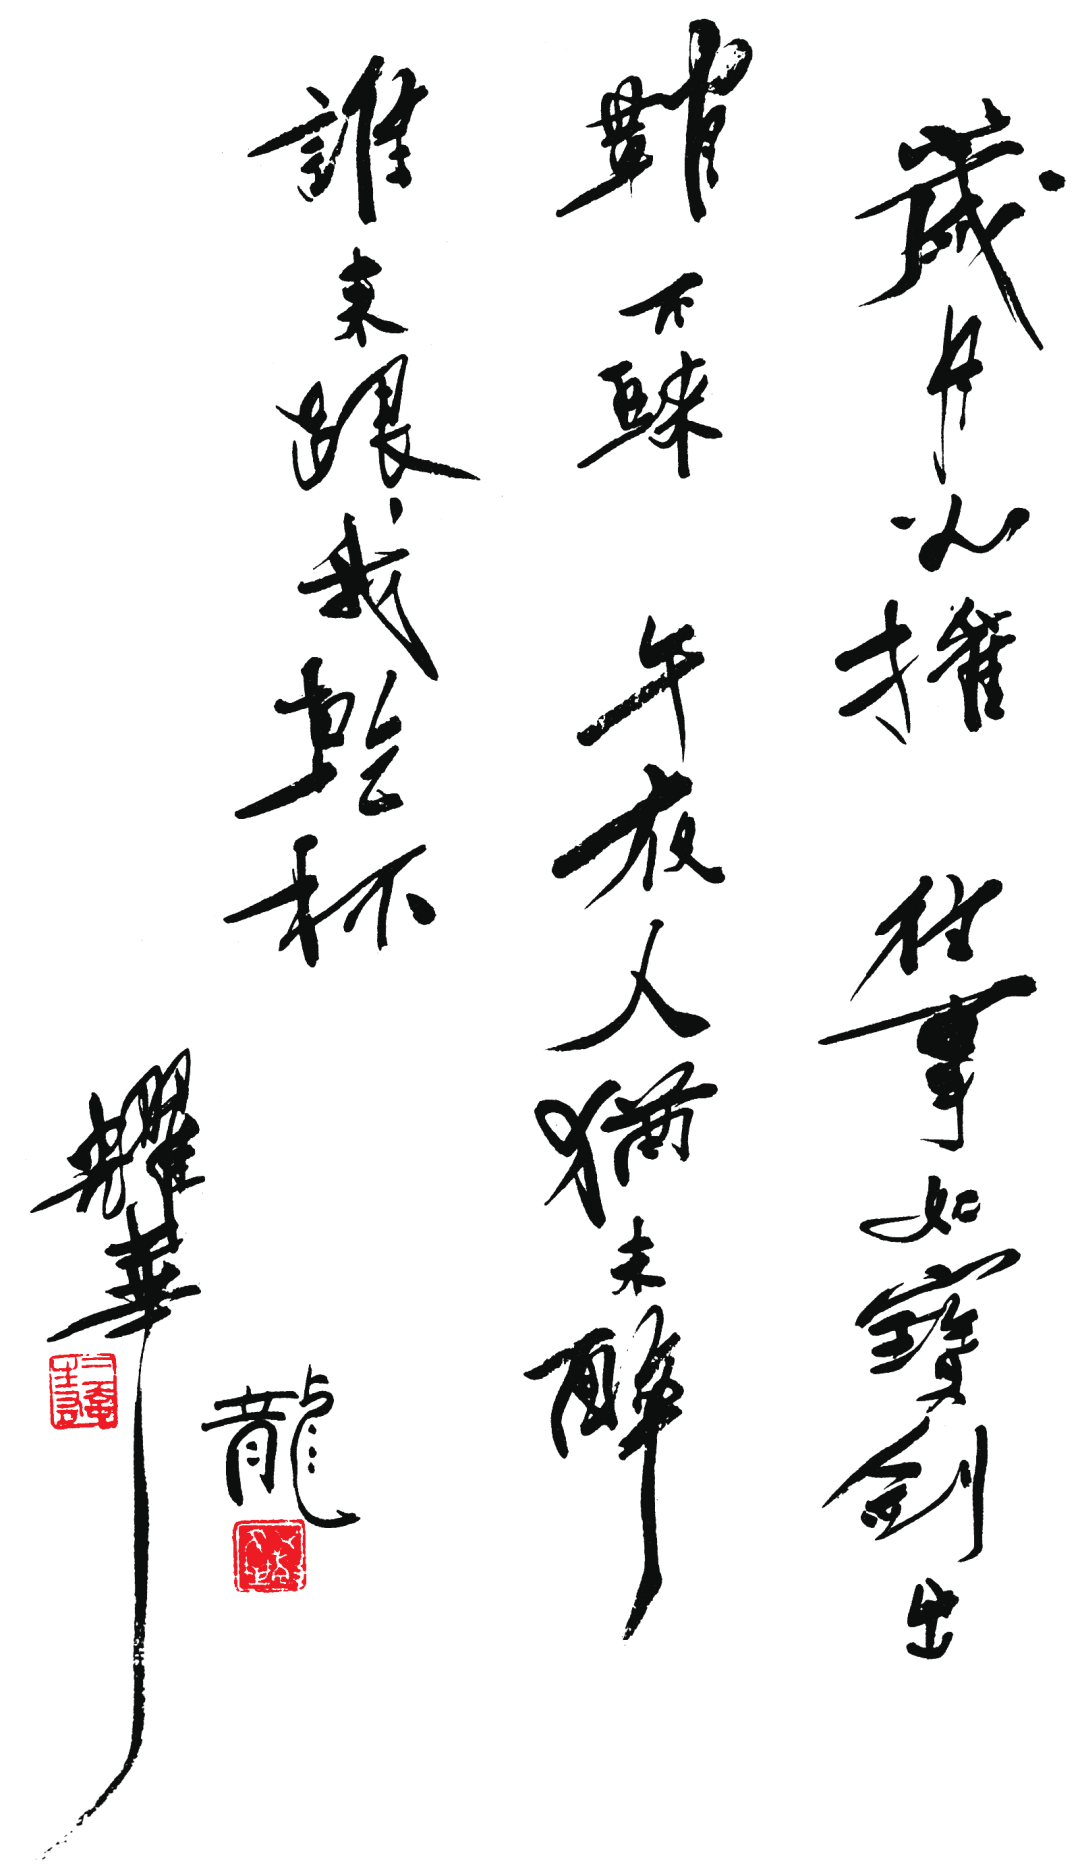 歲月 往事如寶劍出
鞘 不 午夜人猶未醉
誰來跟我乾杯
龍
耀華